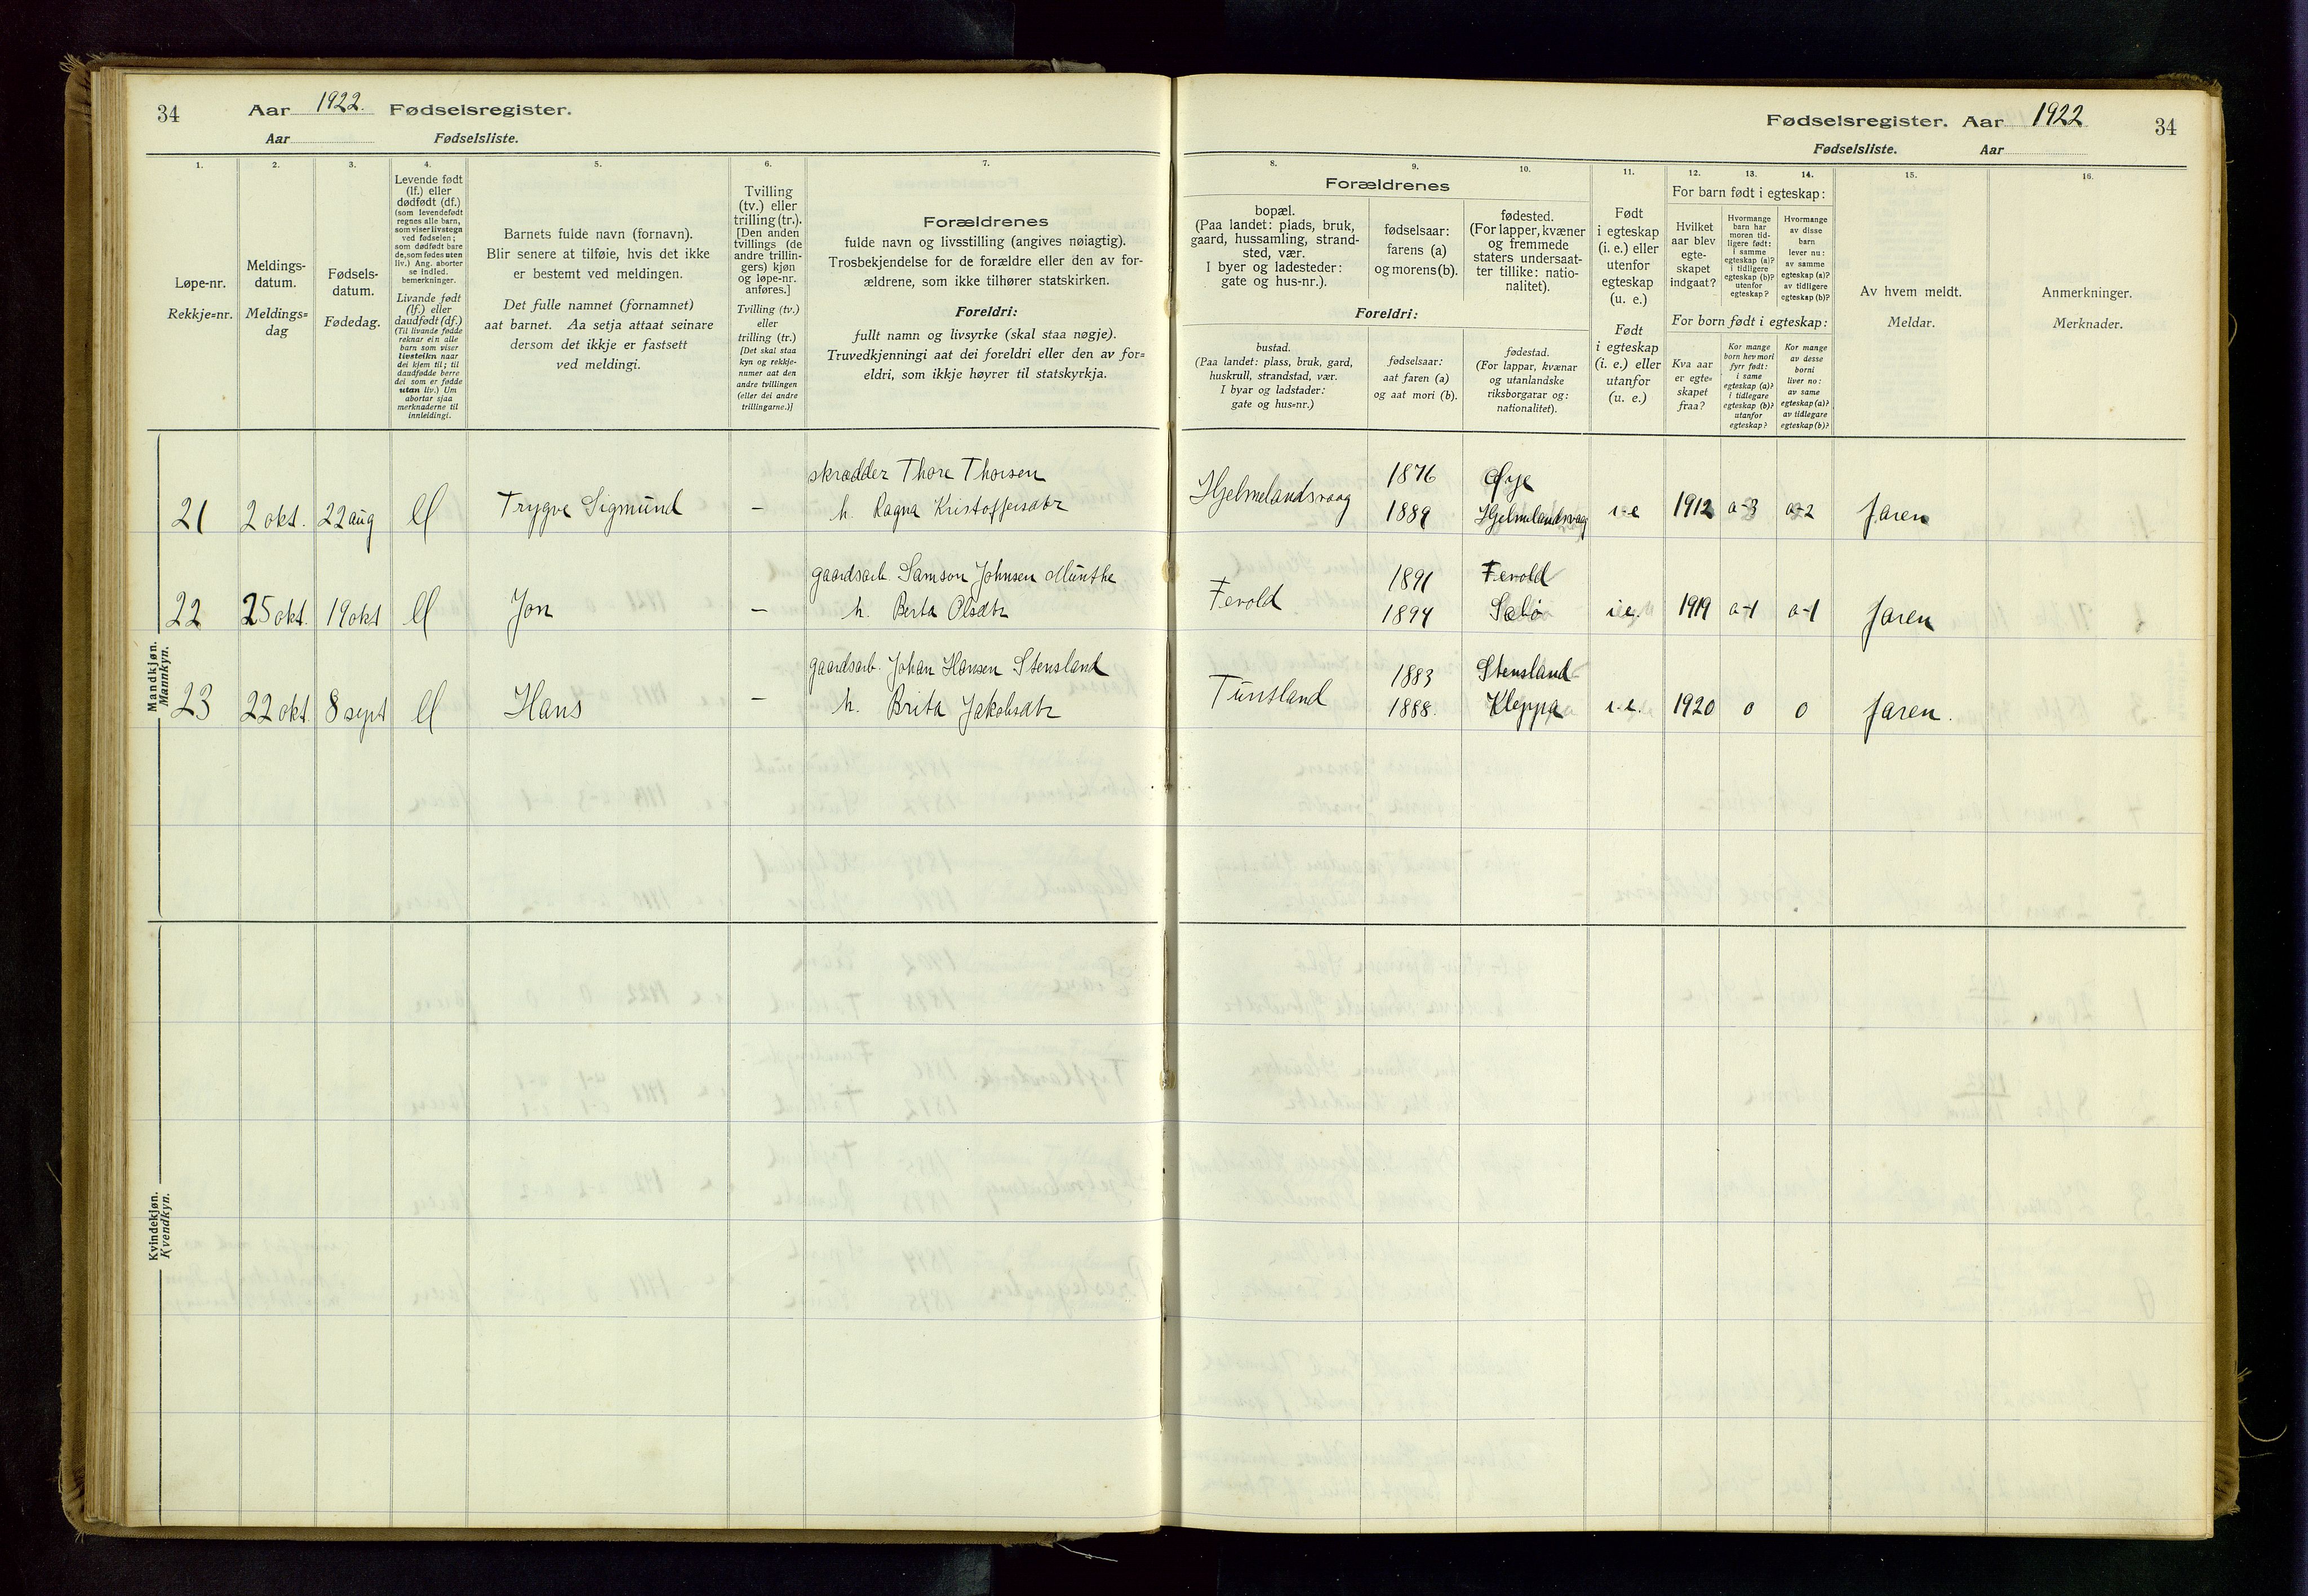 34 Aar 1922. Fødselsregister.
Aar Fødselsliste.
1.
2.
3.
4.
5.
6.
7.
Løpe-nr.
Rekkje=nr.
Meldings-
datum.
Meldings=
dag
Fødsels-
datum.
Fødedag.
Levende født
(lf.) eller
dødfødt (df.)
(som levendefødt
regnes alle barn,
som viser livstegn
ved fødselen;
som dødfødt bare
de, som fødes uten
liv.) Ang. aborter
se indled.
bemerkninger.
Livande født
(lf.) eller
daudfødt (df.)
(Til livande fødde
reknar ein alle
barn som viser
livsteikn naar
dei kjem til; til
daudfødde berre
dei som er fødde
utan liv.) Um
abortar sjaa
merknaderne til
innleidingi.
Barnets fulde navn (fornavn).
Blir senere at tilføie, hvis det ikke
er bestemt ved meldingen.
Det fulle namnet (fornamnet)
aat barnet. Aa setja attaat seinare
dersom det ikkje er fastsett
ved meldingi.
Tvilling
(tv.) eller
trilling (tr.).
[Den anden
tvillings (de
andre trillin-
gers) kjøn
og løpe-nr.
anføres.]
Tvilling (tv.)
eller
trilling (tr.)
[Det skal staa
kyn og rekkje-
numer aat den
andre tvillingen
(eller dei andre
trillingarne.)]
Forældrenes
fulde navn og livsstilling (angives nøiagtig).
Trosbekjendelse for de forældre eller den av for-
ældrene, som ikke tilhører statskirken.
Foreldri:
fullt namn og livsyrke (skal staa nøgje).
Truvedkjenningi aat dei foreldri eller den av for=
eldri, som ikkje høyrer til statskyrkja.
Mandkjøn.
Mannkyn.
21 2 okt. 22 aug lf Trygve Sigmund – skrædder Thore Thorsen
h. Ragna Kristoffersdtr
22 25 okt. 19 okt lf Jon – gaardsarb. Samson Johnsen Munthe
h. Berta Olsdtr
23 22 okt. 8 sept lf Hans – gaardsarb. Johan Hansen Stensland
h. Brita Jakobsdtr
Kvindekjøn.
Kvendkyn.
Fødselsregister. Aar 1922 34
Fødselsliste. Aar
8.
9.
10.
11.
12.
13.
14.
15.
16.
Forældrenes
bopæl.
(Paa landet: plads, bruk,
gaard, hussamling, strand-
sted, vær.
I byer og ladesteder:
gate og hus-nr.).
fødselsaar:
farens (a)
og morens (b).
fødested.
(For lapper, kvæner
og fremmede
staters undersaat-
ter tillike: natio-
nalitet).
Foreldri:
bustad.
(Paa landet: plass, bruk, gard,
huskrull, strandstad, vær.
I byar og ladstader:
gate og hus=nr.)
fødselsaar:
aat faren (a)
og aat mori (b).
fødestad.
(For lappar, kvænar
og utanlandske
riksborgarar og:
nationalitet).
Født
i egteskap
(i. e.) eller
utenfor
egteskap
(u. e.)
Født
i egteskap
(i. e.) eller
utanfor
(u. e.)
For barn født i egteskap:
Hvilket
aar blev
egte-
skapet
indgaat?
Hvormange
barn har
moren tid-
ligere født:
i samme
egteskap (a)?
i tidligere
egteskap (b)?
utenfor
egteskap?
Hvormange
av disse
barn
lever nu:
av samme
egteskap (a)?
av tidligere
egteskap (b)?
For born født i egteskap:
Kva aar
er egte=
skapet
fraa?
Kor mange
born hev mori
fyrr født:
i same
egteskap (a)?
i tidlegare
egteskap (b)?
utanfor
egteskap?
Kor mange
av desse
borni
liver no:
av same
egteskap (a)?
av tidlegare
egteskap (b)?
Av hvem meldt.
Meldar.
Anmerkninger.
Merknader.
Hjelmelandsvaag 1876 Øye
1889 Hjelmelandsvaag i-e 1912 a-3 a-2 faren
Fevold 1891 Fevold
1894 Sæbø i.e. 1919 a-1 a-1 faren
Tunsland 1883 Stensland
1888. Kleppa i-e. 1920 0 0 faren.